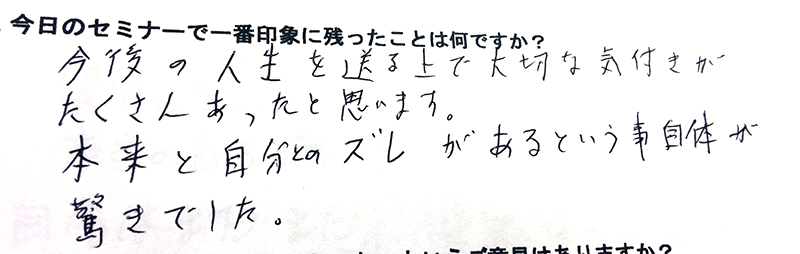 今日のセミナーで一番印象に残ったことは何ですか？
今後の人生を送る上で大切な気付きが
たくさんあったと思います。
本来と自分とのズレがあるという事自体が
驚きでした。
ご意見はありますか？